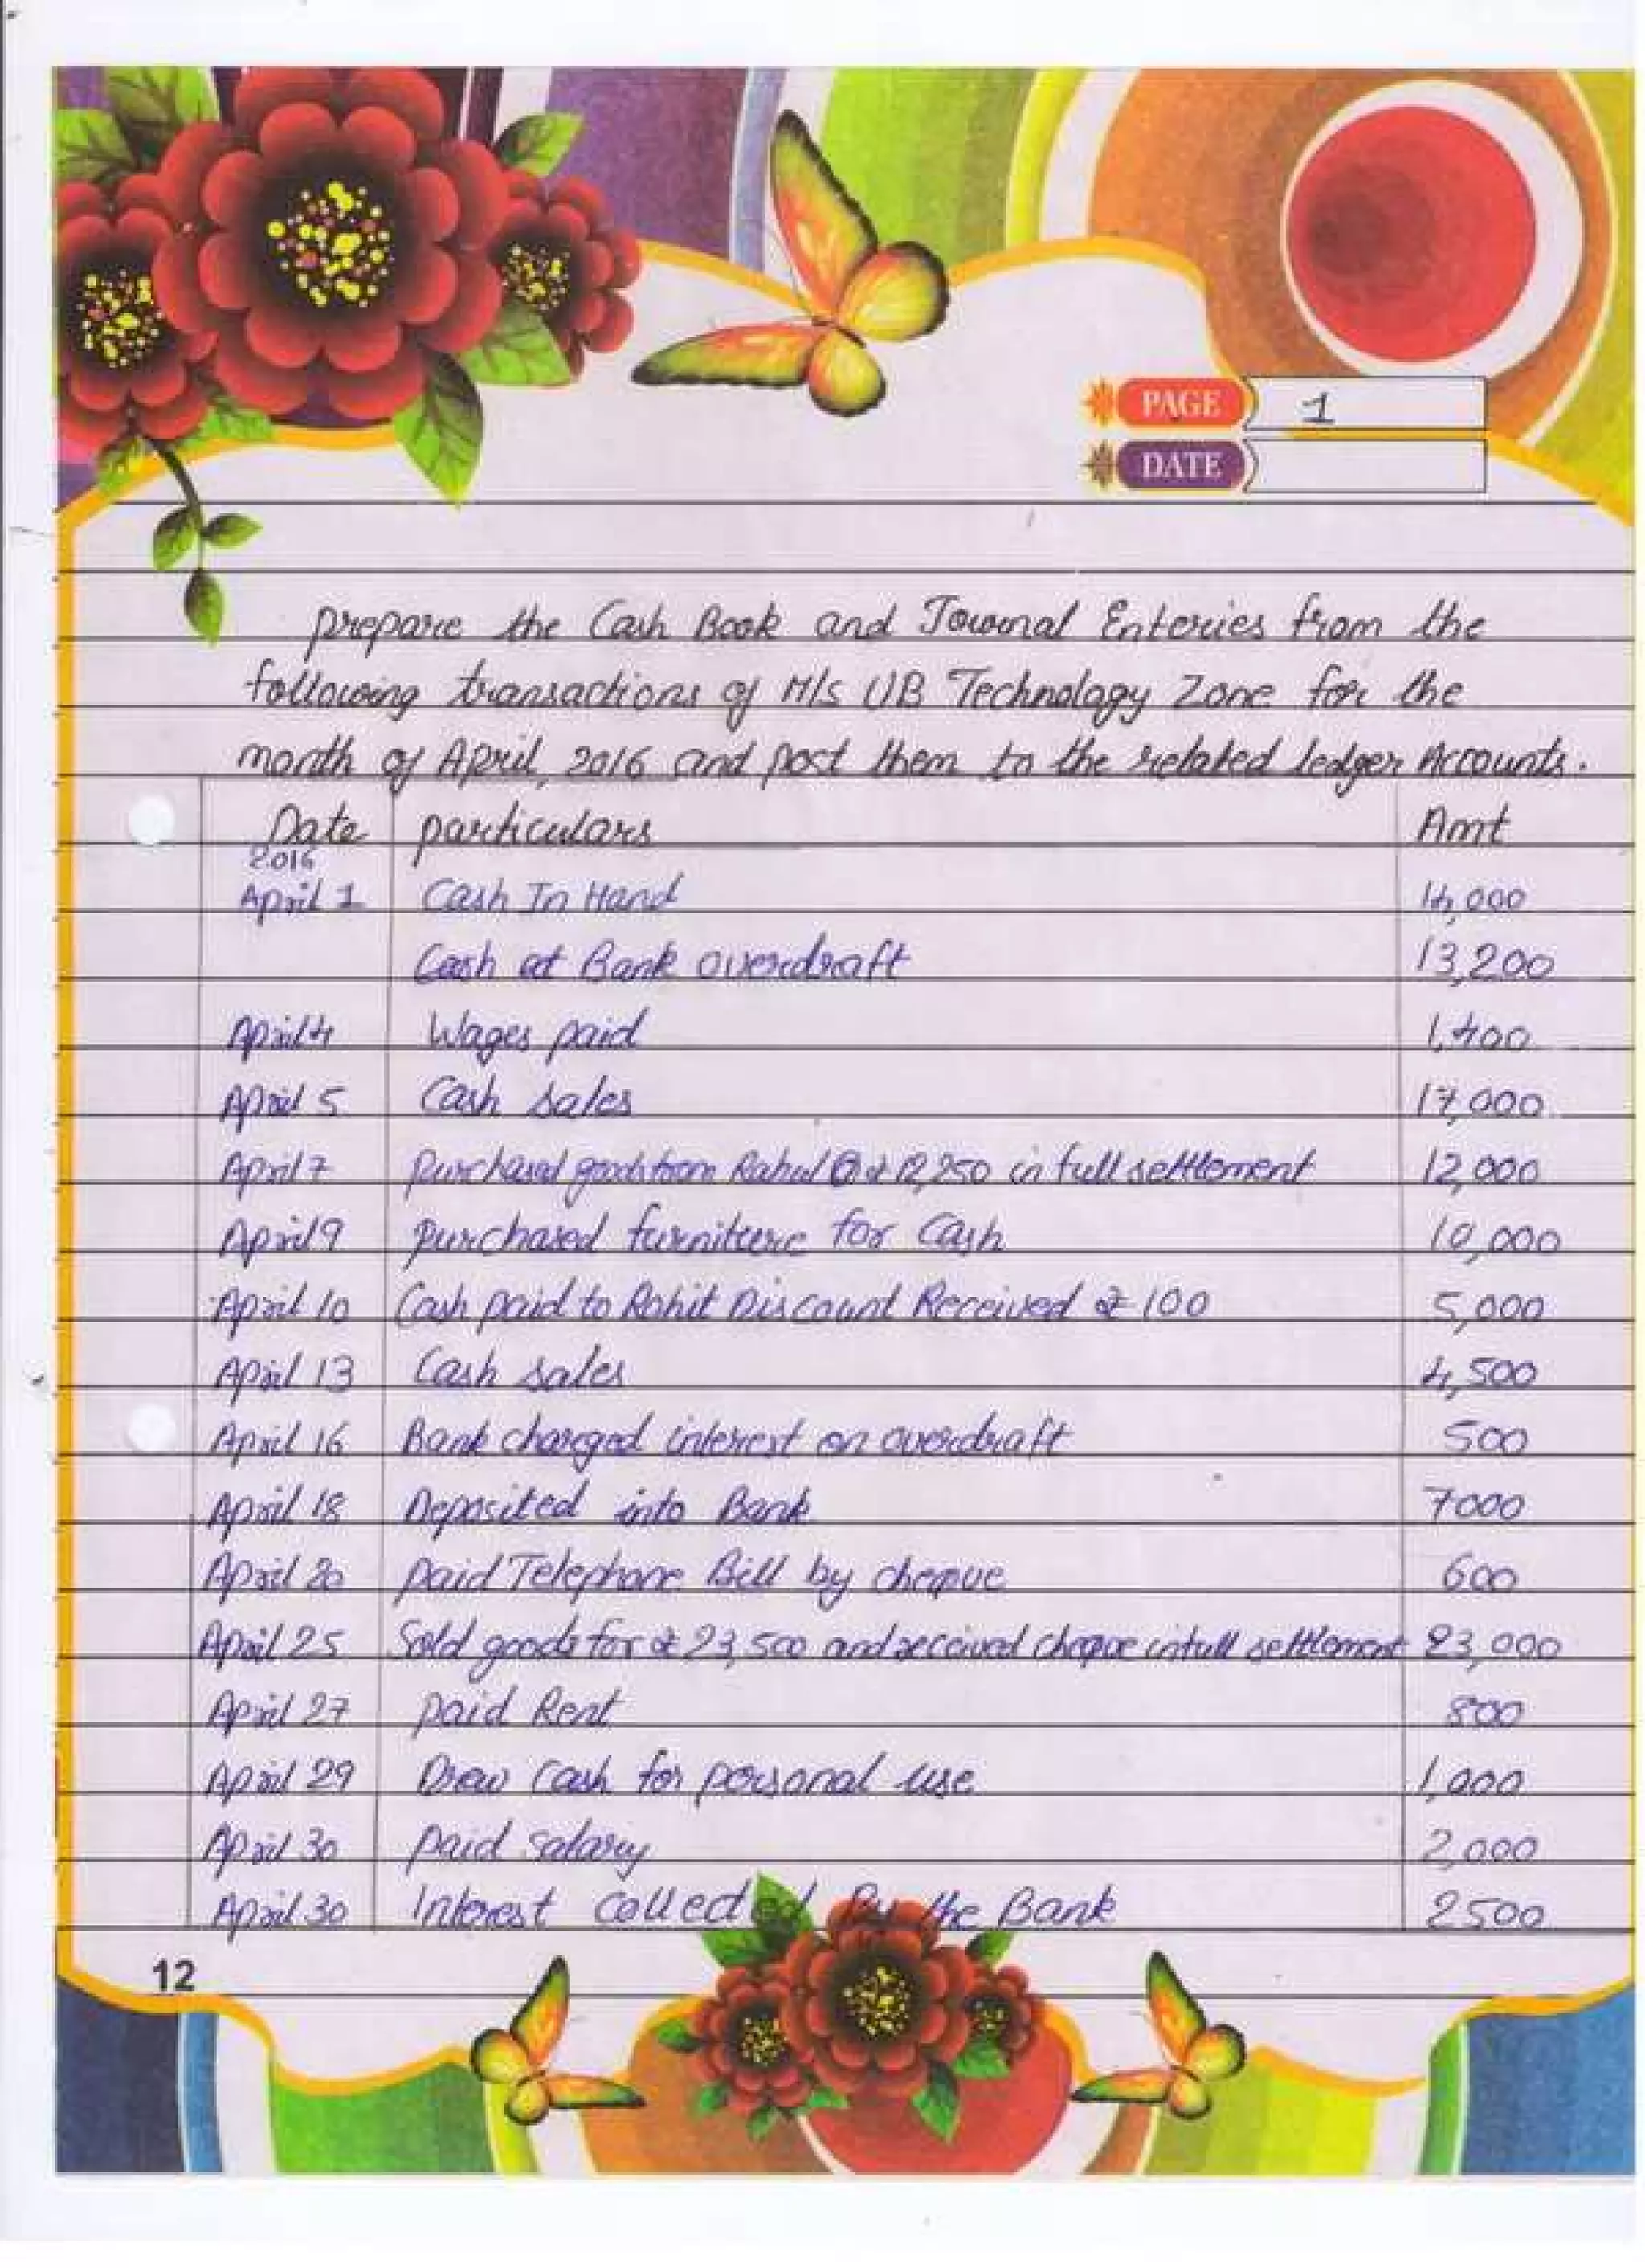 PAGE 1
DATE
Prepare the Cash Book and Journal Enteries from the
following transactions of M/s UB Technology Zone for the
month of April, 2016 and post them to the related ledger Accounts.
Date particulars Amt
2016
April 1 Cash In Hand 14,000
Cash at Bank overdraft 13,200
April 4 Wages paid 1,400
April 5 Cash sales 17,000
April 7 Purchased goods from Rahul ₹ 12,250 in full settlement 12,000
April 9 purchased furniture for Cash 10,000
April 10 Cash paid to Rohit Discount Received ₹ 100 5,000
April 13 Cash sales 4,500
April 16 Bank charged interest on overdraft 500
April 18 Deposited into Bank 7000
April 20 paid Telephone Bill by cheque 600
April 25 Sold goods for ₹ 23,500 and received cheque in full settlement 23,000
April 27 paid Rent 800
April 29 Drew Cash for personal use 1,000
April 30 paid salary 2,000
April 30 Interest collected By the Bank 2500
12